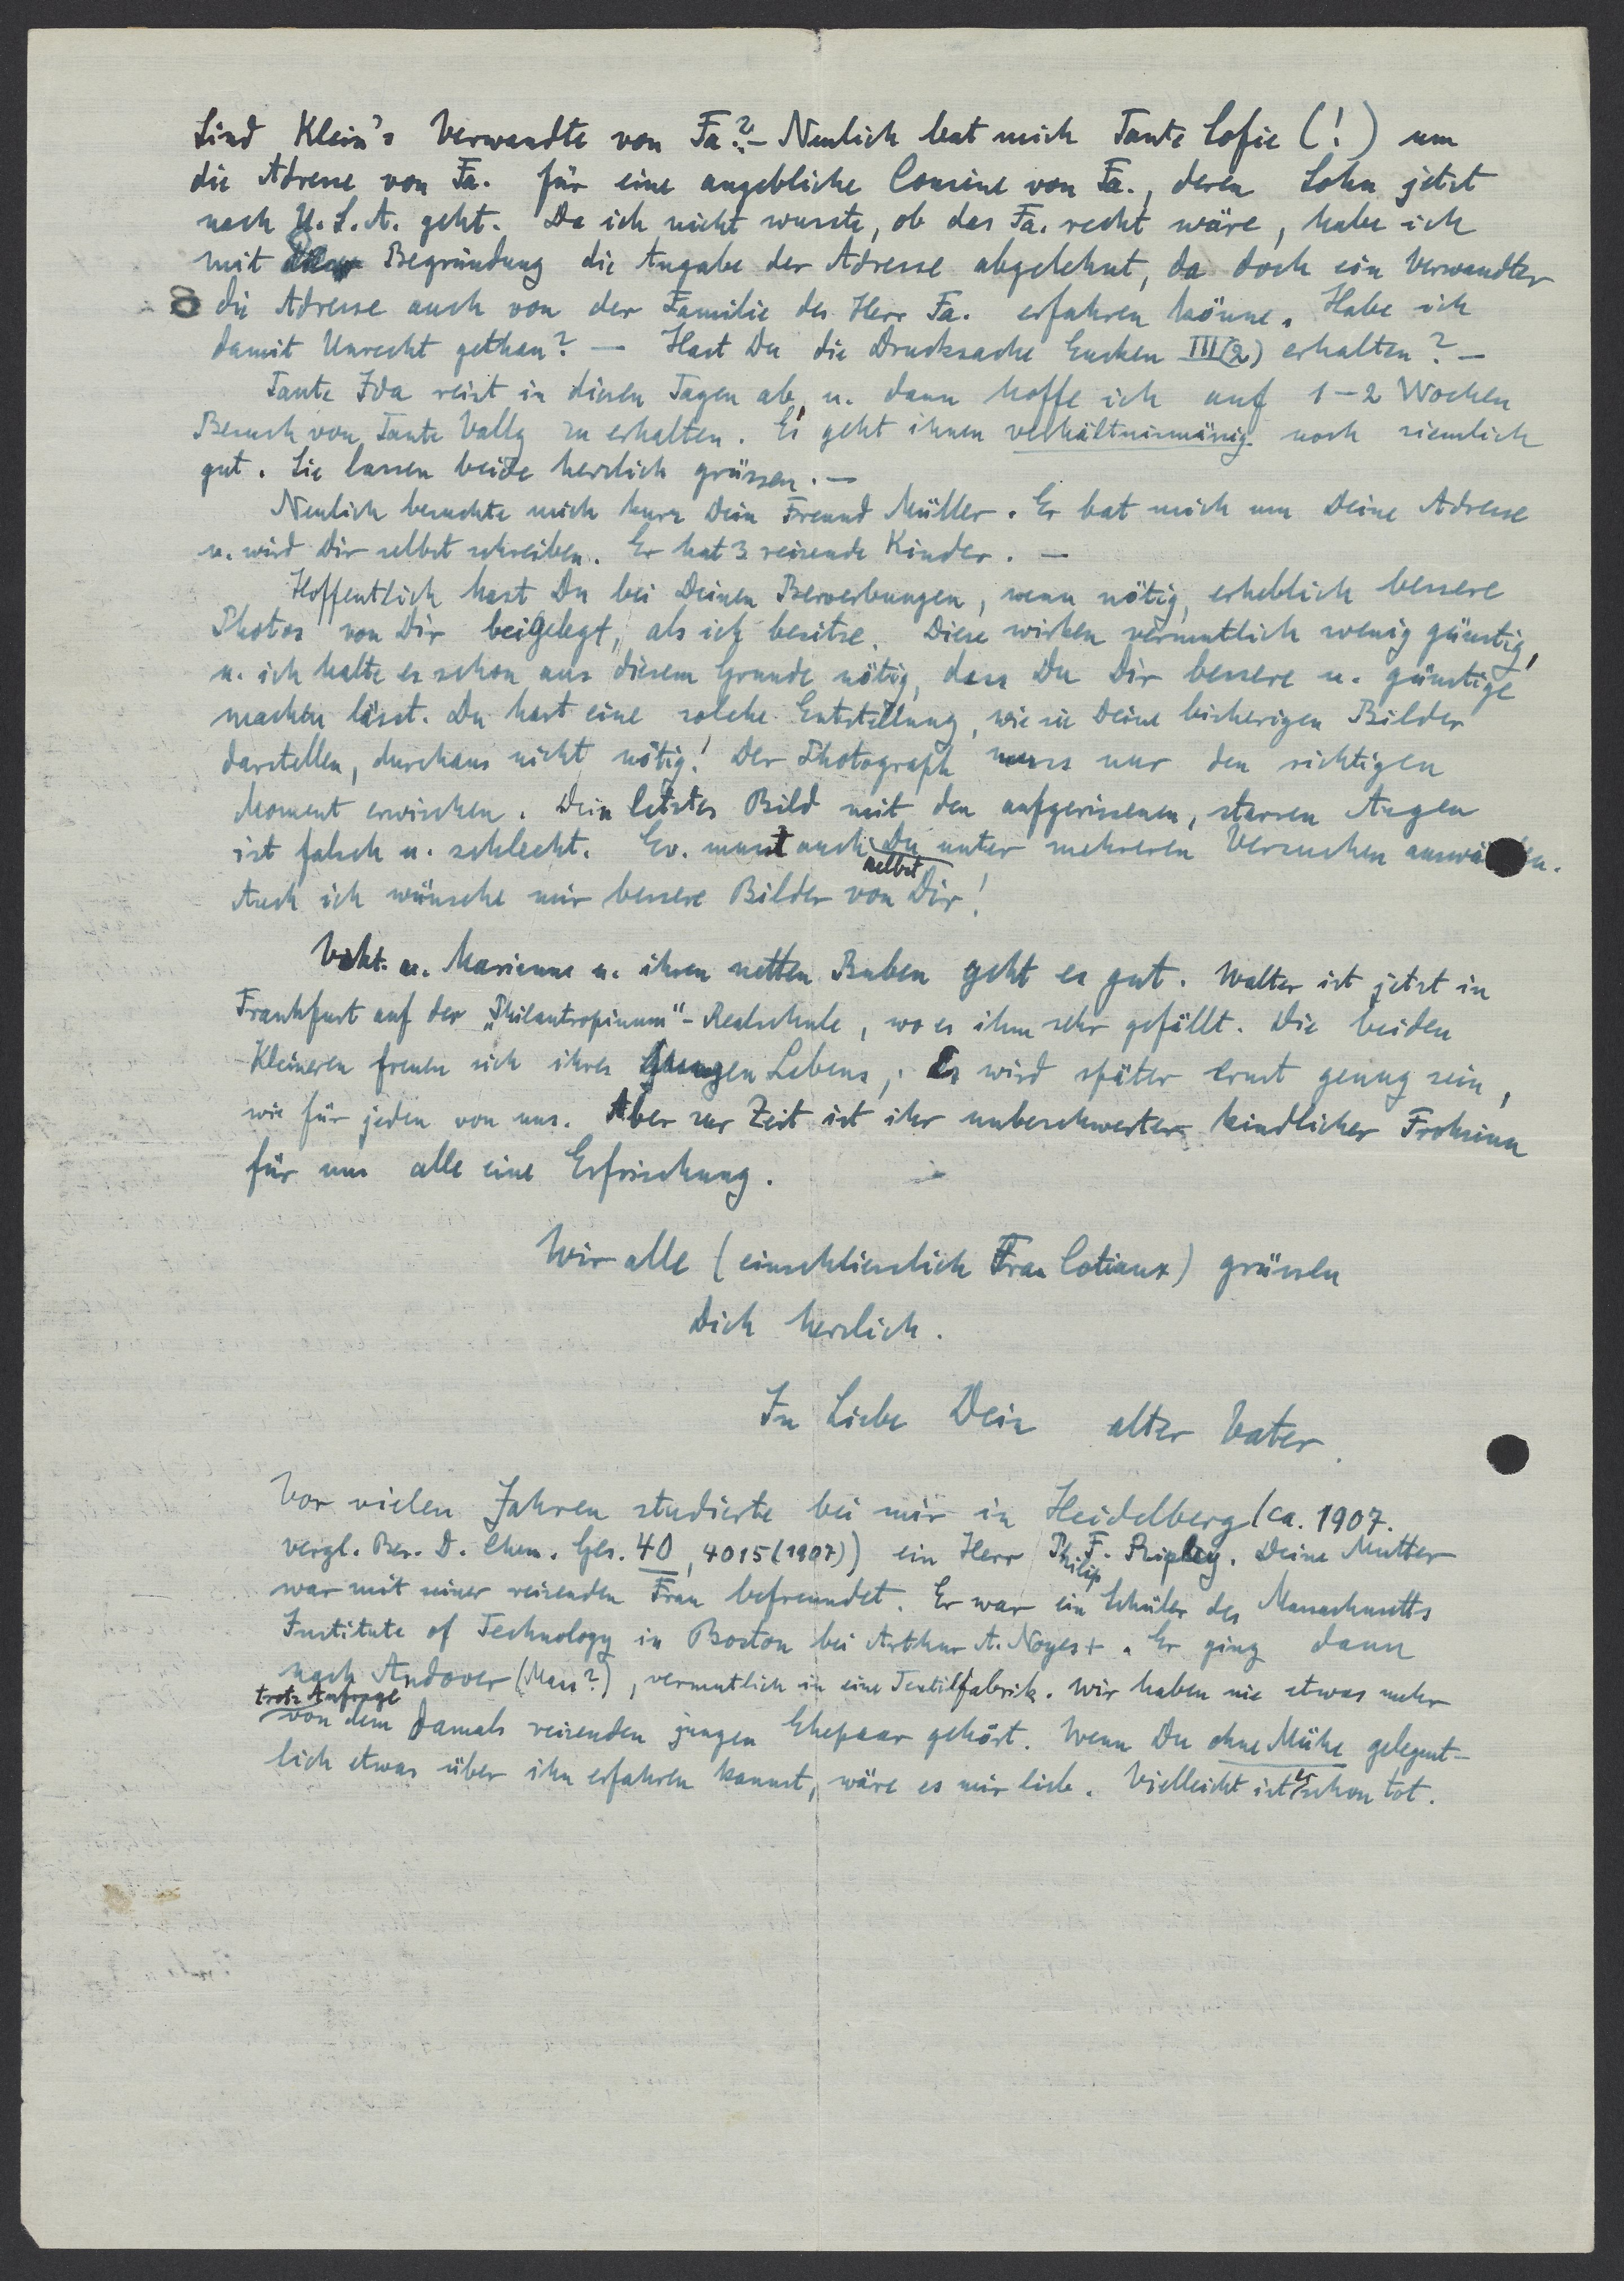 Sind Klein's Verwandte von Fa.? – Neulich bat mich Tante Sofie (!) um
die Adresse von Fa. für eine angebliche Cousine von Fa., deren Sohn jetzt
nach U.S.A. geht. Da ich nicht wusste, ob das Fa. recht wäre, habe ich
mit der Begründung die Angabe der Adresse abgelehnt, da doch ein Verwandter
die Adresse auch von der Familie des Herr Fa. erfahren könne. Habe ich
damit Unrecht gethan? – Hast Du die Drucksache Eucken III(2) erhalten? –
Tante Ida reist in diesen Tagen ab, u. dann hoffe ich auf 1–2 Wochen
Besuch von Tante Vally zu erhalten. Es geht ihnen verhältnismässig noch ziemlich
gut. Sie lassen beide herzlich grüssen. –
Neulich besuchte mich kurz Dein Freund Müller. Er bat mich um Deine Adresse
u. wird Dir selbst schreiben. Er hat 3 reizende Kinder. –
Hoffentlich hast Du bei Deinen Bewerbungen, wenn nötig, erheblich bessere
Photos von Dir beigelegt, als ich besitze. Diese wirken vermutlich wenig günstig,
u. ich halte es schon aus diesem Grunde nötig, dass Du Dir bessere u. günstige
machen lässt. Du hast eine solche Entstellung, wie sie Deine bisherigen Bilder
darstellen, durchaus nicht nötig! Der Photograph muss nur den richtigen
Moment erwischen. Dein letztes Bild mit den aufgerissenen, starren Augen
ist falsch u. schlecht. Ev. musst auch Du selbst unter mehreren Versuchen
Auch ich wünsche mir bessere Bilder von Dir!
Vikt. u. Marianne u. ihren netten Buben geht es gut. Walter ist jetzt in
Frankfurt auf der „Philantropinum"-Realschule, wo es ihm sehr gefällt. Die beiden
Kleineren freuen sich ihres jungen Lebens, Es wird später ernst genug sein,
wie für jeden von uns. Aber zur Zeit ist ihr unbeschwerter kindlicher Frohsinn
für uns alle eine Erfrischung.
Wir alle (einschliesslich Frau Cotiaux) grüssen
Dich herzlich.
In Liebe Dein alter Vater.
Vor vielen Jahren studierte bei mir in Heidelberg (ca. 1907.
vergl. Ber. D. Chem. Ges. 40, 4015 (1907)) ein Herr Philip F. Ripley. Deine Mutter
war mit seiner reizenden Frau befreundet. Er war ein Schüler des Massachusetts
Institute of Technology in Boston bei Arthur A. Noyes +. Er ging dann
nach Andover (Mass?), vermutlich in eine Textilfabrik. Wir haben nie etwas mehr
trotz Anfrage von dem damals reizenden jungen Ehepaar gehört. Wenn Du ohne Mühe gelegent-
lich etwas über ihn erfahren kannst, wäre es mir lieb. Vielleicht ist er schon tot.